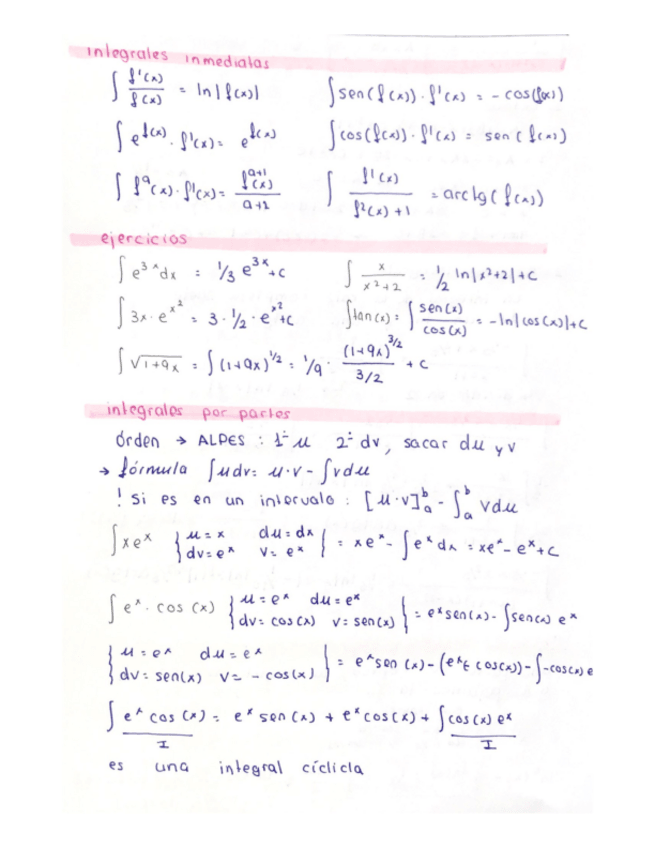 integrales inmediatas
∫ f'(x)/f(x) = ln|f(x)| ∫sen(f(x))·f'(x) = -cos(f(x))
∫e^f(x)·f'(x) = e^f(x) ∫cos(f(x))·f'(x) = sen(f(x))
∫f^a(x)·f'(x) = f^a+1(x)/a+1 ∫ f'(x)/f²(x)+1 = arctg(f(x))
ejercicios
∫e^3x dx = 1/3 e^3x+c ∫ x/x²+2 = 1/2 ln|x²+2|+c
∫3x·e^x² = 3·1/2·e^x²+c ∫tan(x) = ∫ sen(x)/cos(x) = -ln|cos(x)|+c
∫√1+9x = ∫(1+9x)^1/2 = 1/9 · (1+9x)^3/2 / 3/2 + c
integrales por partes
órden → ALPES : 1º u 2º dv, sacar du y v
→ fórmula ∫udv = u·v - ∫vdu
! Si es en un intervalo : [u·v]_a^b - ∫_a^b vdu
∫xe^x { u = x du = dx dv = e^x v = e^x } = xe^x - ∫e^x dx = xe^x - e^x + c
∫e^x · cos (x) { u = e^x du = e^x dv = cos(x) v = sen(x) } = e^x sen(x) - ∫sen(x) e^x
{ u = e^x du = e^x dv = sen(x) v = - cos(x) } = e^x sen (x) - (e^x(-cos(x)) - ∫-cos(x) e
∫e^x cos (x) = e^x sen (x) + e^x cos(x) + ∫cos(x) e^x
I I
es una integral cíclicla